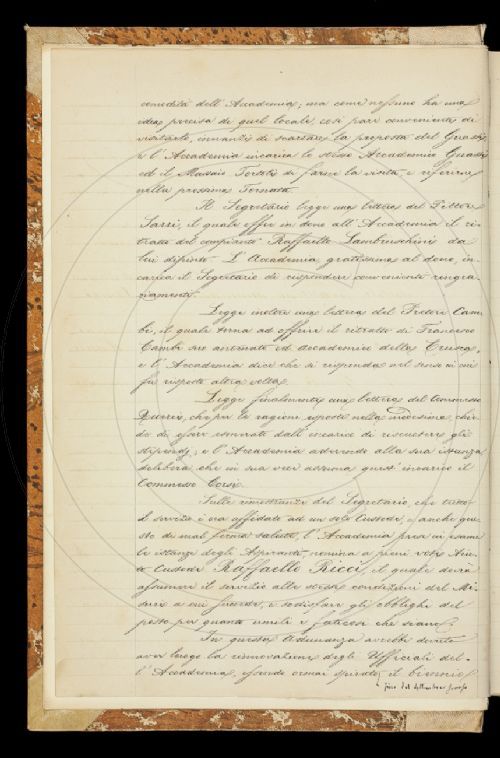 comodità dell'Accademia; ma come nessuno ha una
idea precisa di quel locale, così pare conveniente di
visitarlo, innanzi di scartare la proposta del Guasti,
e l'Accademia incarica lo stesso Accademico Guasti
ed il Massaio Tortoli di farne la visita, e riferirne
nella prossima Tornata.
Il Segretario legge una lettera del Pittore
Sarri, il quale offre in dono all'Accademia il ri-
tratto del compianto Raffaello Lambruschini da
lui dipinto. L'Accademia, gratissima al dono, in-
carica il Segretario di rispondere conveniente ringra-
ziamento.
Legge inoltre una lettera del Cam-
bi, il quale torna ad offrire il ritratto di Francesco
Cambi suo antenato ed accademico della Crusca,
e l'Accademia dice che si risponda nel senso in cui
fu risposto altra volta.
Legge finalmente una lettera del Commesso
che per le ragioni esposte nella medesima chie-
de di essere esonerato dall'incarico di riscuotere gli
stipendj; e l'Accademia aderendo alla sua istanza
delibera che in sua vece assuma quest'incarico il
Commesso Corsi.
Sulle rimostranze del Segretario, che tutto
il servizio è ora affidato ad un solo Custode, e anche que-
sto di mal ferma salute, l'Accademia presa in esame
le istanze degli Aspiranti, nomina a pieni voti Aiu-
to Custode Raffaello Ricci, il quale dovrà
assumere il servizio alle stesse condizioni del Mi-
a cui succede, e sodisfare gli obblighi del
posto per quanto umili e faticosi che siano.
In questa Adunanza avrebbe dovuto
aver luogo la rinnovazione degli Ufficiali del-
l'Accademia, essendo ormai spirato il biennio
fino dal settembre scorso